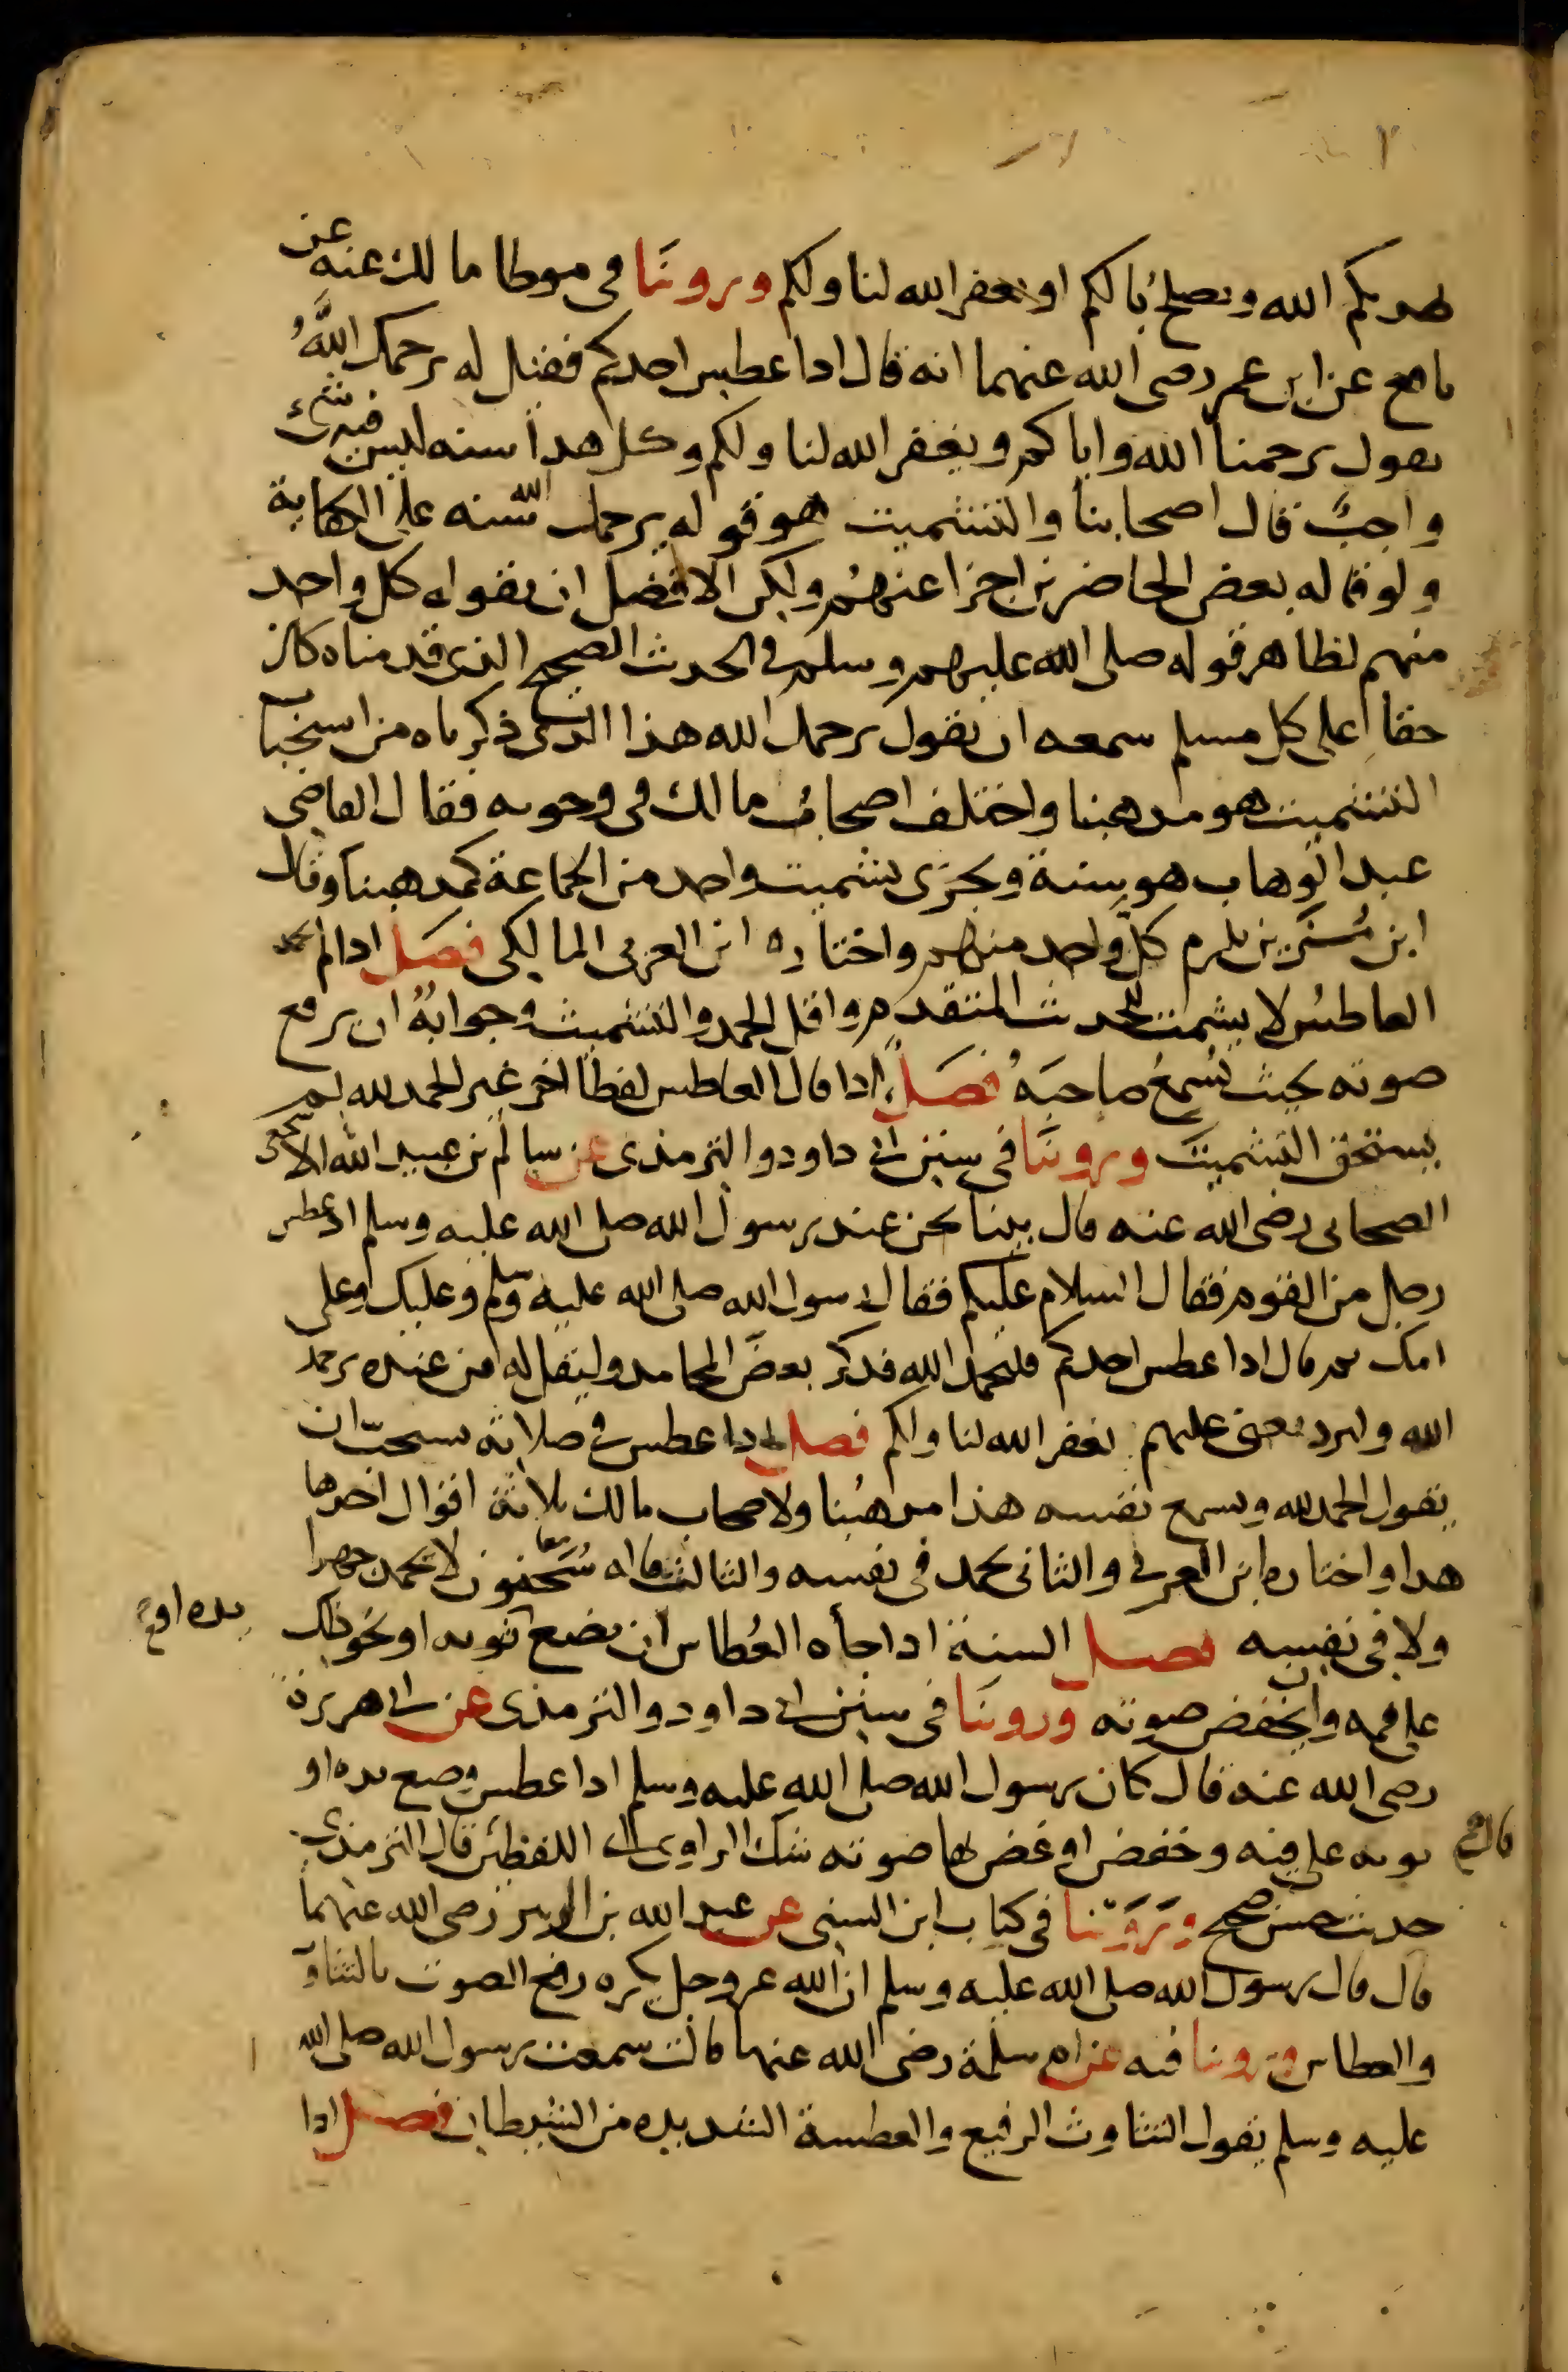 يهديكم الله ويصلح بالكم او يغفر الله لنا ولكم وروينا في موطا مالك عنه عن
نافع عن ابن عمر رضى الله عنهما انه قال اذا عطس احدكم فقيل له يرحمك اللهُ
يقول يرحمنا الله واياكم ويغفر الله لنا ولكم وكل هذا سنه ليس فيه شىء
واجبٌ قال اصحابنا والتشميت هو قوله يرحمك الله سنه على الكفاية
ولو قاله بعض الحاضرين اجزا عنهم ولكن الافضل ان يقوله كل واحد
منهم لظاهر قوله صلى الله عليهم وسلم في الحديث الصحيح الذى قدمناه كان
حقا على كل مسلم سمعه ان يقول يرحمك الله هذا الذى ذكرناه من استحباب
التشميت هو مذهبنا واختلف اصحاب مالك في وجوبه فقال القاضى
عبد الوهاب هو سنة ويجزى تشميت واحد من الجماعة كمذهبنا وقال
ابن مُزَين يلزم كل واحد منهم واختاره ابن العربي المالكي فصل اذا لم يحمد
العاطس لا يشمت للحديث المتقدم واقل الحمد والتشميت وجوابه ان يرفع
صوته بحيث يُسمعُ صاحبَهُ فصل اذا قال العاطس لفظا اخر غير الحمد لله لم
يستحق التشميتَ وروينا في سنن ابى داود والترمذى عن سالم بن عبيد الله الاشجعى
الصحابى رضى الله عنه قال بينا نحن عند رسول الله صلى الله عليه وسلم اذ عطس
رجل من القوم فقال السلام عليكم فقال رسول الله صلى الله عليه وسلم وعليك وعلى
امك ثم قال اذا عطس احدكم فليحمد الله فذكر بعض المحامد وليقل له من عنده يرحمك
الله وليرد يعنى عليهم يغفر الله لنا ولكم فصل اذا عطس في صلاته يستحبّ ان
يقول الحمد لله ويسمع نفسه هذا مذهبُنا ولاصحاب مالك ثلاثة اقوال احدها
هذا واختاره ابن العربي والثانى يحمد في نفسه والثالث قاله سُحنون لا يحمد جهرا
ولا في نفسه فصل السنة اذا جاءه العُطاس ان يضع يده او ثوبه او نحو ذلك
على فمه وان يخفض صوته وروينا في سنن ابى داود والترمذى عن ابى هريرة
رضى الله عنه قال كان رسول الله صلى الله عليه وسلم اذا عطس وضع يده او
ثوبه على فيه وخفض او غض بها صوته شك الراوى اى اللفظين قال قال الترمذى
حديث حسن صحيح ورَوَيْنا في كتاب ابن السنى عن عبد الله بن الزبير رضى الله عنهما
قال قال رسول الله صلى الله عليه وسلم ان الله عز وجل يكره رفع الصوت بالتثاؤب
والعطاس وروينا فيه عن ام سلمة رضى الله عنها قالت سمعت رسول الله صلى الله
عليه وسلم يقول التثاوب الرفيع والعطسة الشديده من الشيطان فصل اذا